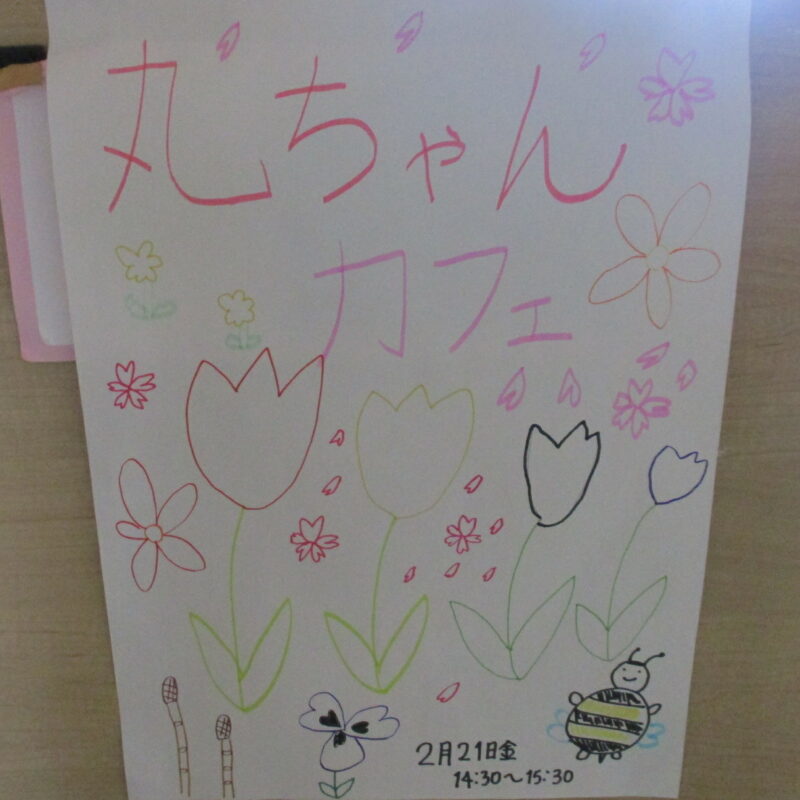 丸ちゃん
カフェ
2月21日金
14:30〜15:30